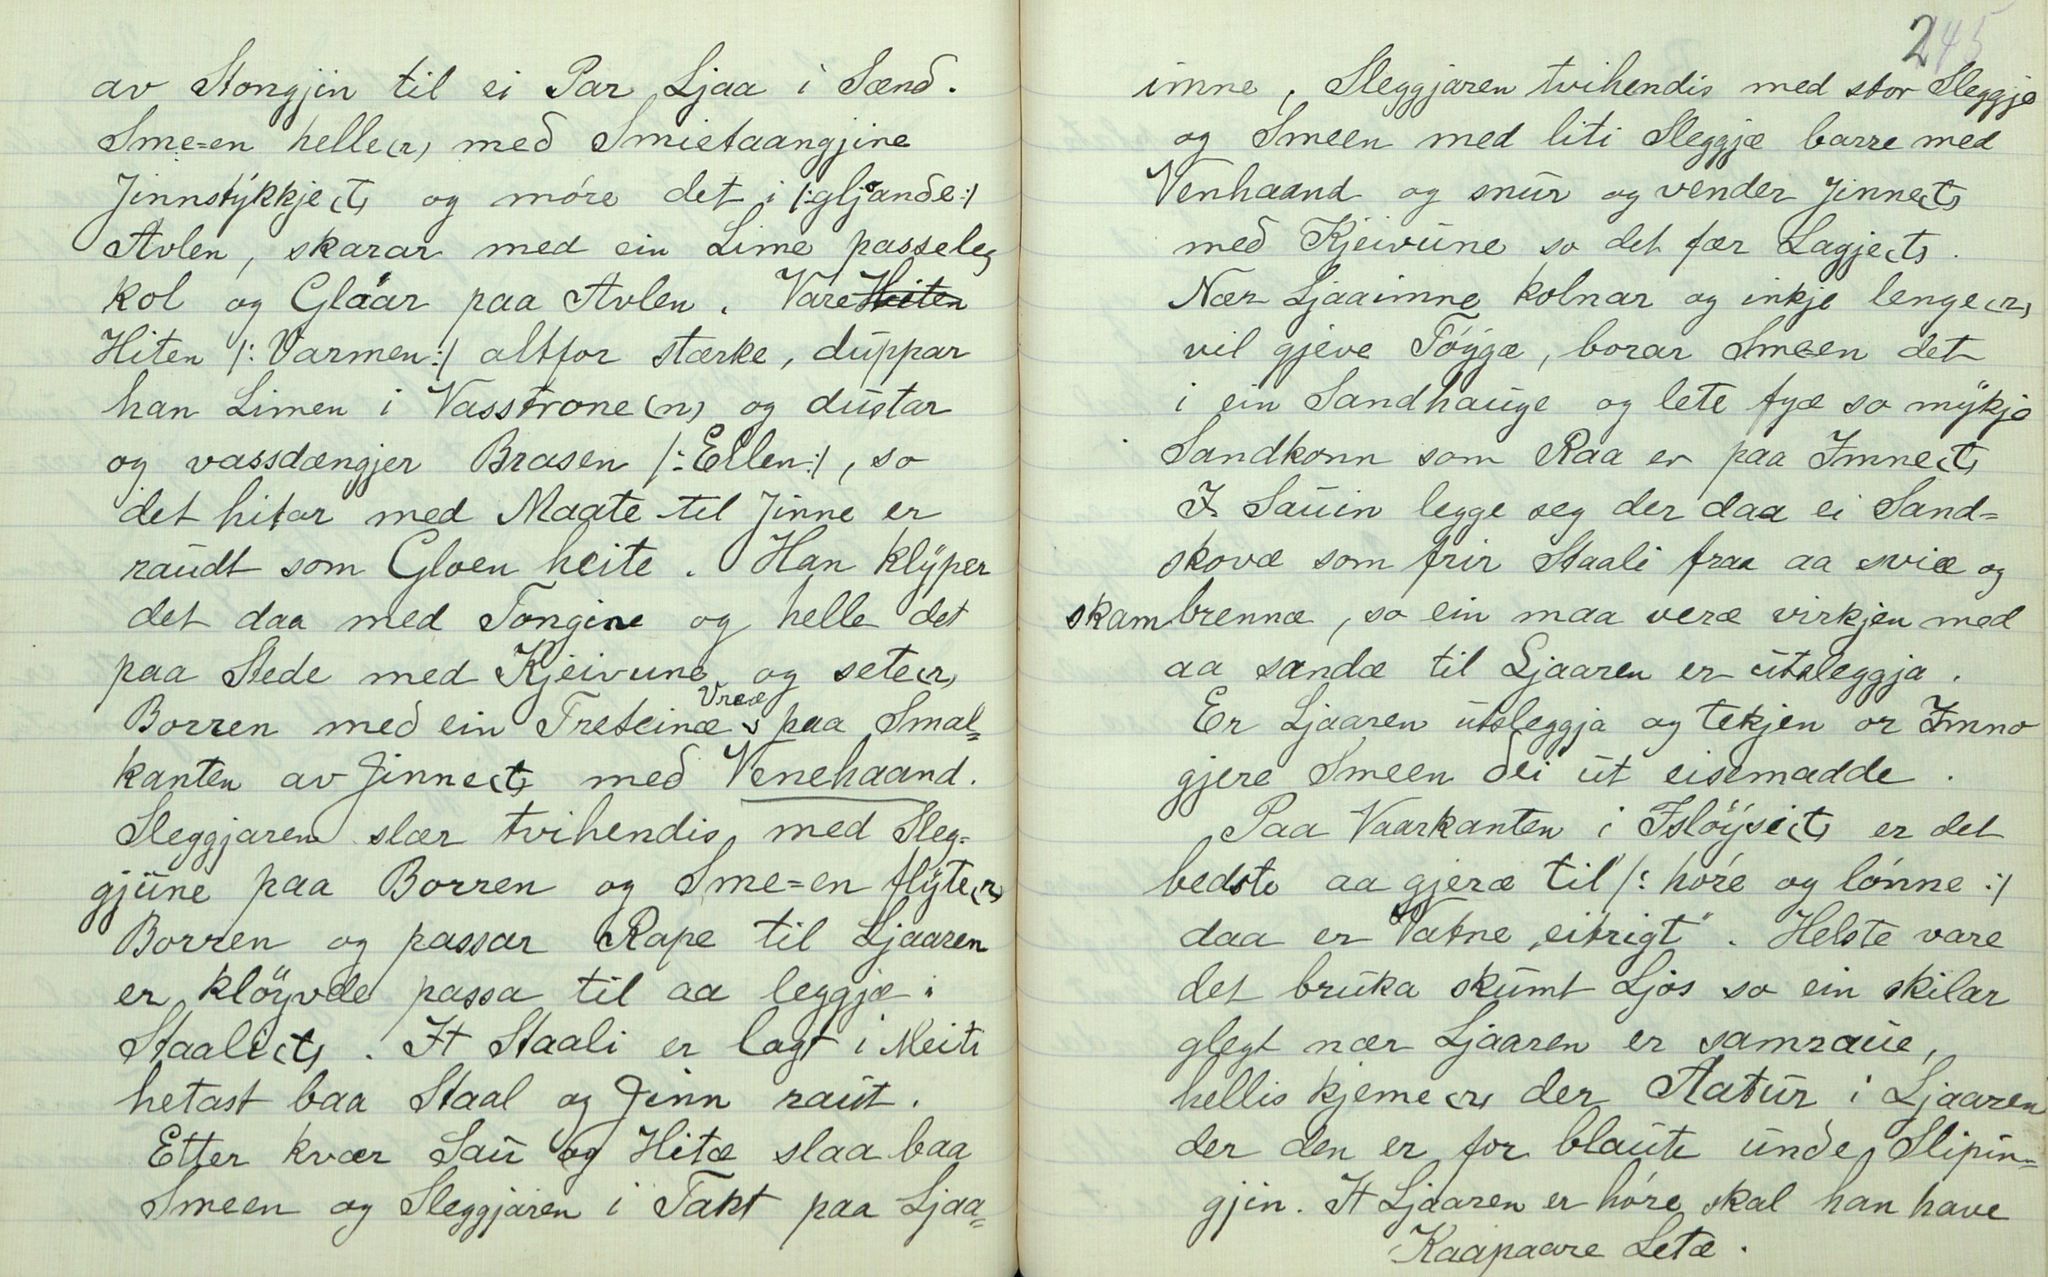 av Stongjin til ei Par Ljaa i Sænd.
Sme=en helle(r) med Smietaangjine
Jinnstÿkkje(t) og móre det i /:gljande:/
Avlen, skarar med ein Lime passeleg
kol og Glaar paa Avlen. Vare Heiten
Hiten /: Varmen:/ altfor stærke, duppar
han Limen i Vasstrone(n) og dustar
og vassdængjer Brasen /: Ellen:/, so
det hitar med Maate til Jinne er
raudt som Gloen heite. Han klÿper
det daa med Tongine og helle det
paa Stede med Kjeivune og sete(r)
Vreæ
Borren med ein Treteinæ paa Smal=
kanten av Jinne(t) með Venehaand.
Sleggjaren slær tvihendis med Sleg=
gjune paa Borren og Sme=en flÿte(r)
Borren og passar Rape til Ljaaren
er klöyvde passa til aa leggjæ i
Staali(t). It Staali er lagt i Meiti
hetast baa Staal og Jinn raut.
Etter kvær Sau og Hitæ slaa baa
Smeen og Sleggjaren i Takt paa Ljaa=
245
imne, Sleggjaren tvihendis med stor Sleggje
og Smeen med liti Sleggjæ barre med
Venhaand og snur og vender Jinne(t)
með Kjeivune so det fær Lagje(t).
Nær Ljaaimne kolnar og inkje lenge(r)
vil gjeve Tógge, borar Sme=en det
i ein Sandhauge og lete fyæ so mÿkje
Sandkonn som Raa er paa Imne(t)
I Sauin legge seg der daa ei Sand=
skovæ som frir Staali fraa aa sviæ og
skambrennæ, so ein maa veræ virkjen med
aa sandæ til Ljaaren er utsleggja.
Er Ljaaren utsleggja og tekjen or Imno
gjere Smeen ðei ut eisemadde.
Paa Vaarkanten i Islöyse(t) er det
bedste aa gjeræ til /: hóre og lónne :/
daa er Vatne „eitrigt". Helste vare
det bruka skumt Ljos so ein skilar
glegt nær Ljaaren er samraue,
hellis kjeme(r) der Aatur i Ljaaren
der den er for blaute unde Slipin=
gjin. It Ljaaren er hóre skal han have
Kaapaare Letæ.